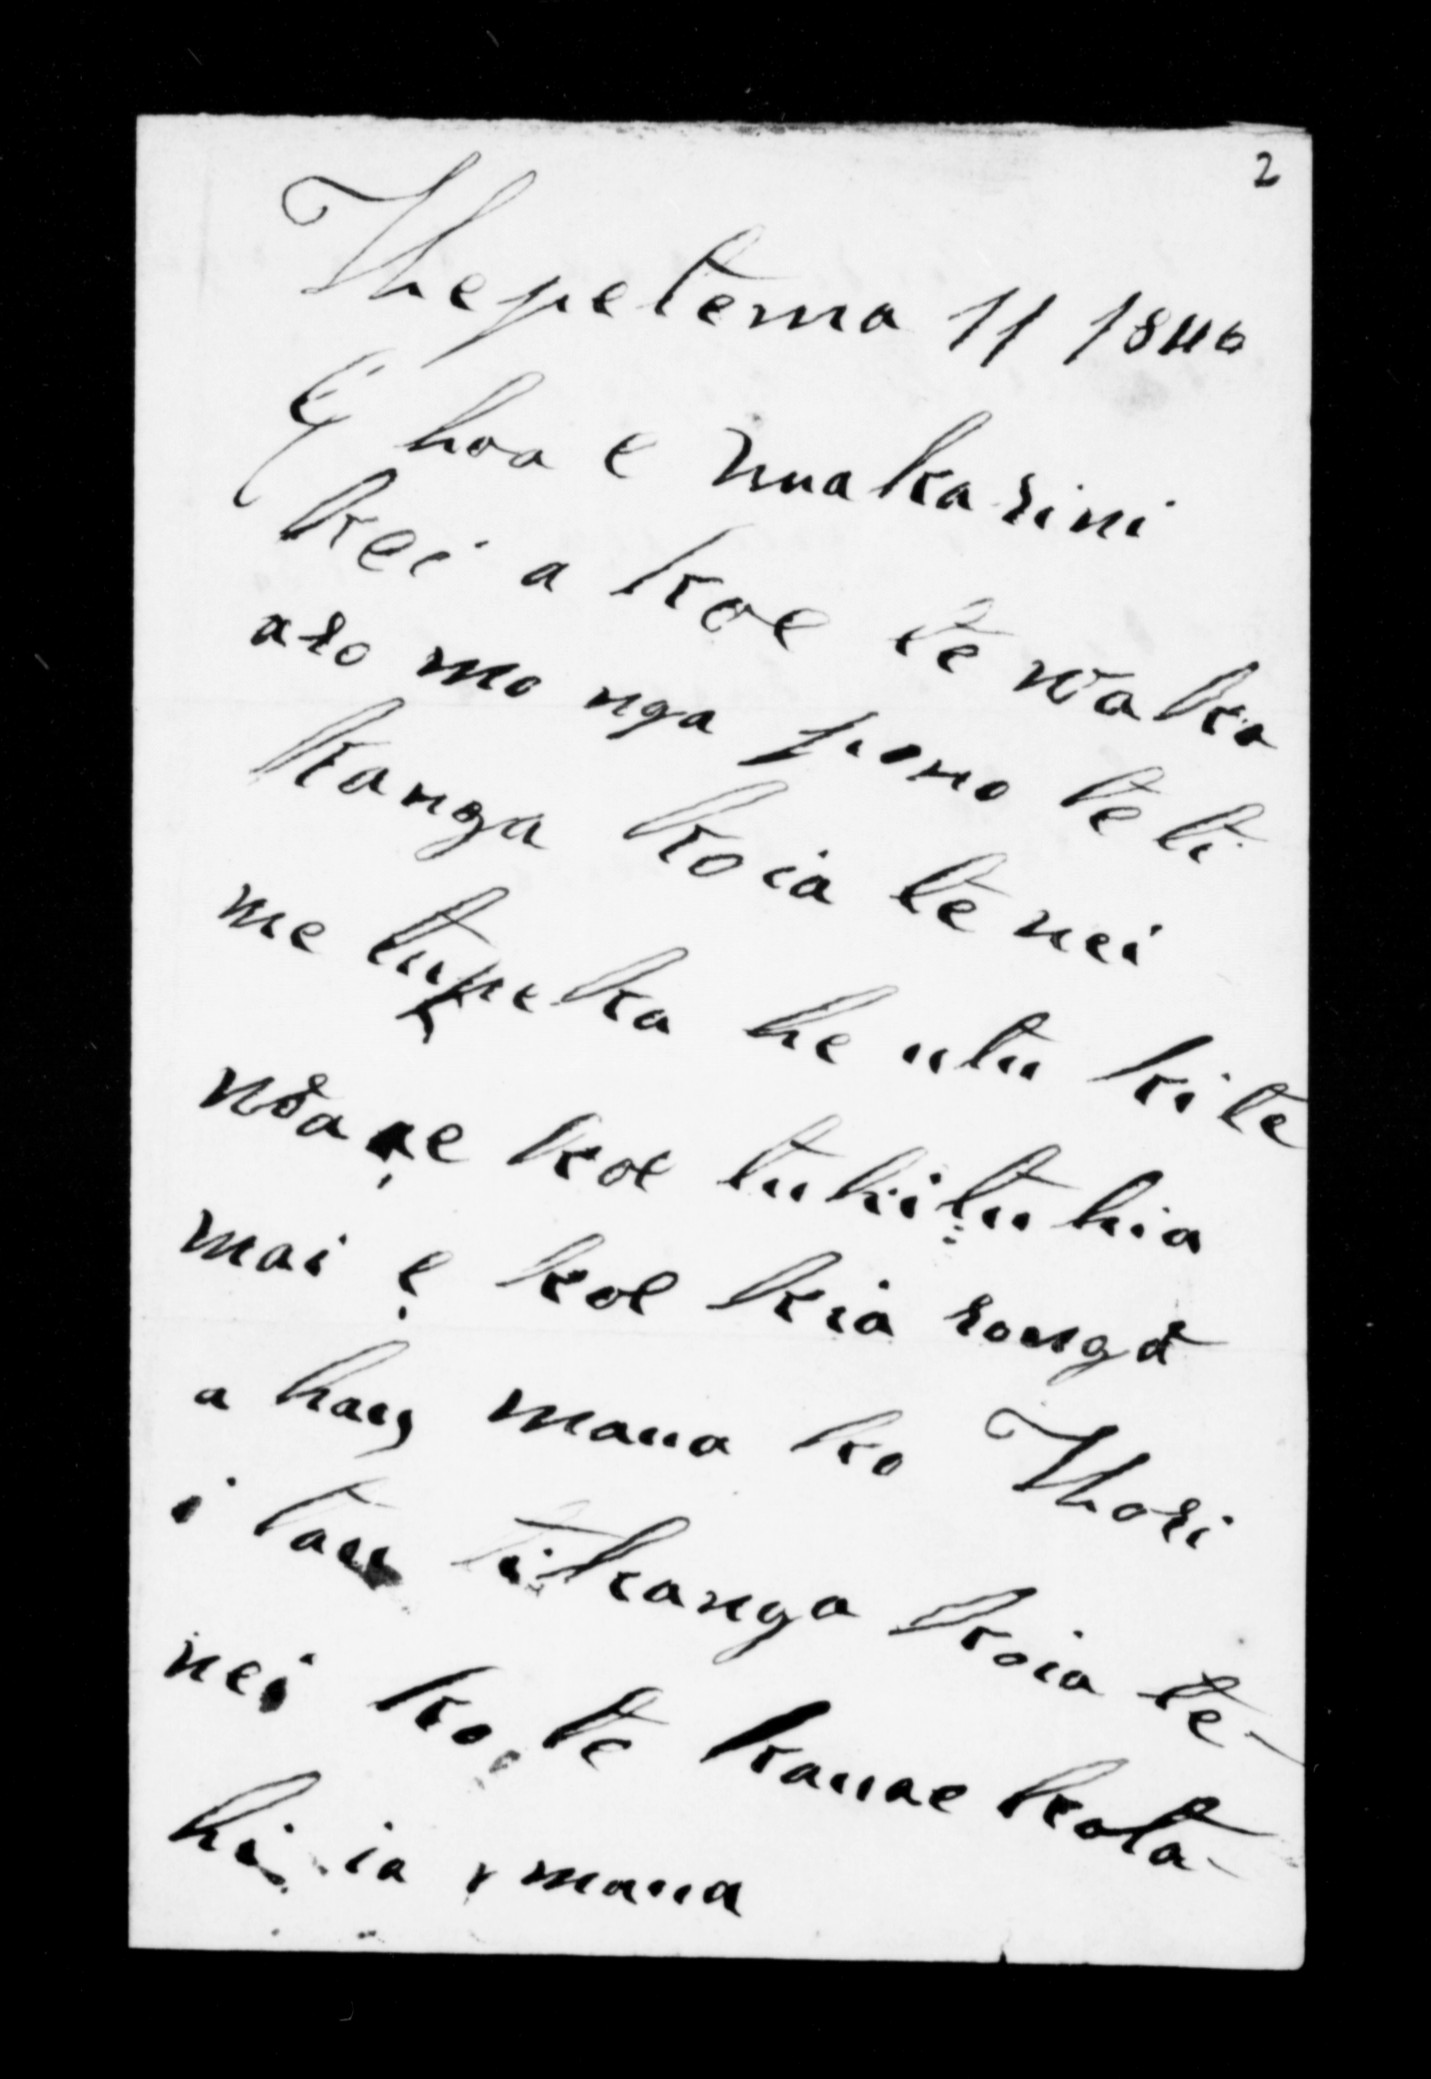 2
Thepetema 11 1846
E hoa e muakarini
kei a koe te waka
aro mo nga pono te ti
kanga koia te nei
me tupeka he utu ki te
waae koe tuhituhia
mai e koe kia rongo
a hau maua ko Thori
i tau tikanga koia te-
nei ko te kauae kota-
hi ia maua